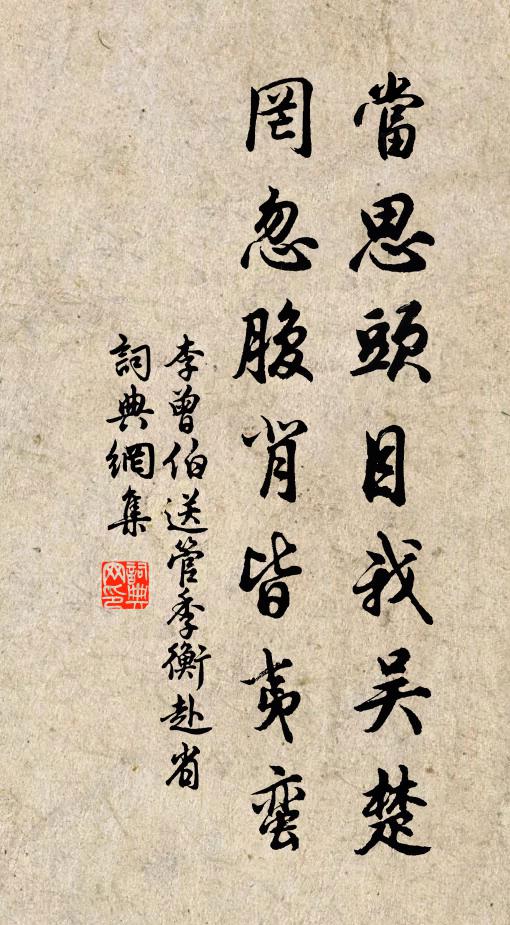 當思頭目我吴楚
罔忽腹背皆夷蛮
李曾伯送管季衡赴省
詞典網集
詞典网印